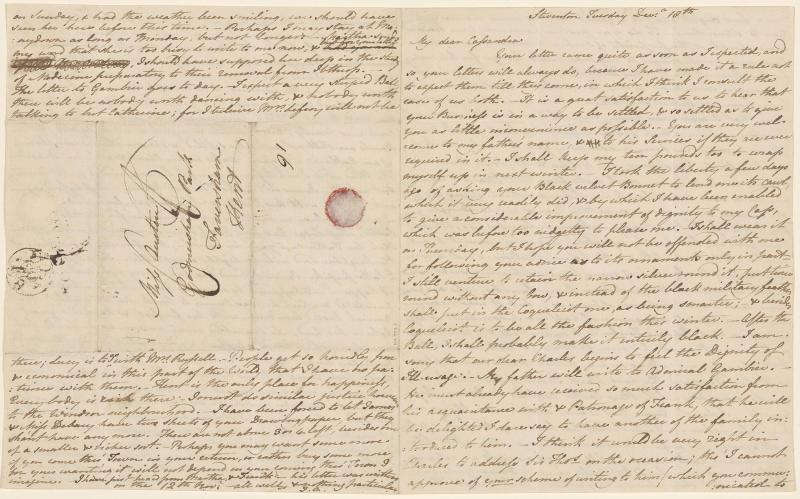 on Sunday, & had the weather been smiling, we should have
seen her here before this time. – Perhaps I may stay at Ma-
nydown as long as Monday, but not longer. – Martha sends
me word that she is too busy to write to me now, & but for your letter
I should have supposed her deep in the study
of Medicine preparatory to their removal from Ibthrop. –
The letter to Gambier goes to day. – I expect a very stupid Ball,
there will be nobody worth dancing with, & nobody worth
talking to but Catherine; for I believe Mrs Lefroy will not be
Miss Austen
Godmersham Park
Faversham
Kent
16
there; Lucy is to go with Mrs Russell. – People get so horridly poor
& economical in this part of the World, that I have no pa-
-tience with them. – Kent is the only place for happiness,
Everybody is rich there. – I must do similar justice however
to the Windsor neighbourhood. – I have been forced to let James
& Miss Debary have two sheets of your Drawing paper, but they
shant have any more. There are not above 3 or 4 left, besides one
of a smaller & richer sort. – Perhaps you may want some more
if you come thro' Town in your return, or rather buy some more
for your wanting it will not depend on your coming thro' Town I
imagine. – I have just heard from Martha, & Frank – his letter was written
on the 12th Novr – all well, & nothing particular.
J. A.
Steventon Tuesday Decr 18th
My dear Cassandra
Your letter came quite as soon as I expected, and
so your letters will always do, because I have made it a rule not
to expect them till they come, in which I think I consult the
ease of us both. – It is a great satisfaction to us to hear that
your Business is in a way to be settled, & so settled as to give
you as little inconvenience as possible. – You are very wel-
come to my father's name, & to his Services if they are ever
required in it. – I shall keep my ten pounds too to wrap
myself up in next winter. – I took the liberty a few days
ago of asking your Black velvet Bonnet to lend me its cawl,
which it very readily did, & by which I have been enabled
to give a considerable improvement of dignity to my Cap,
which was before too nidgetty to please me. – I shall wear it
on Thursday, but I hope you will not be offended with me
for following your advice as to its ornaments only in part –
I still venture to retain the narrow silver round it, put twice
round without any bow, & instead of the black military feather
shall put in the Coquelicot one, as being smarter; – & besides
Coquelicot is to be all the fashion this winter. – After the
Ball, I shall probably make it entirely black. – I am
sorry that our dear Charles begins to feel the Dignity of
Ill-usage. – My father will write to Admiral Gambier. –
He must already have received so much satisfaction from
his acquaintance with & Patronage of Frank, that he will
be delighted I dare say to have another of the family in-
troduced to him. – I think it would be very right in
Charles to address Sir Thos. on the occasion; tho' I cannot
approve of your scheme of writing to him (which you commu-
-nicated to